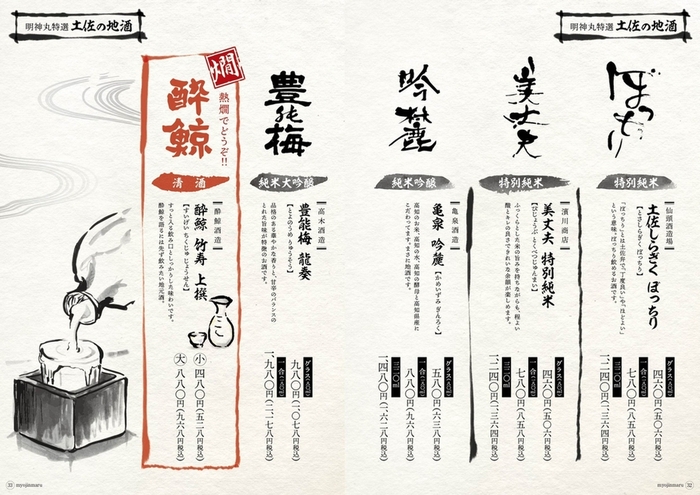 明神丸特選 土佐の地酒
ぼっちり
特別純米
仙頭酒造場
土佐しらぎく ぼっちり
【とさしらぎく ぼっちり】
「ぼっちり」とは土佐弁で、「丁度良い」や、「ほどよい」
という意味。ぼっちり飲めるお酒です。
グラス 四六〇円(五〇六円税込)
一合 七八〇円(八五八円税込)
一二四〇円(一三六四円税込)
美丈夫
特別純米
濵川商店
美丈夫 特別純米
【びじょうふ とくべつじゅんまい】
ふっくらとした米の旨みを持ちながらも、程よい
酸とキレの良さできれいな余韻が楽しめます。
グラス 四六〇円(五〇六円税込)
一合 七八〇円(八五八円税込)
一二四〇円(一三六四円税込)
吟麓
純米吟醸
亀泉酒造
亀泉 吟麓
【かめいずみ ぎんろく】
高知のお米、高知の水、高知の酵母と高知県産に
こだわってます。まさに地酒です。
グラス 五八〇円(六三八円税込)
一合 八八〇円(九六八円税込)
一四八〇円(一六二八円税込)
豊能梅
純米大吟醸
高木酒造
豊能梅 龍奏
【とよのうめ りゅうそう】
品格のある華やかな香りと、甘辛のバランスの
とれた旨味が特徴のお酒です。
グラス 九八〇円(一〇七八円税込)
一合 一九八〇円(二一七八円税込)
燗
熱燗でどうぞ!!
酔鯨
清酒
酔鯨酒造
酔鯨 竹寿 上撰
【すいげい ちくじゅ じょうせん】
すっと入る飲み口としっかりした味わいです。
酔鯨を語るには先ず飲みたい地元酒。
小 四八〇円(五二八円税込)
大 八八〇円(九六八円税込)
明神丸特選 土佐の地酒
31 myojinmaru
myojinmaru 32